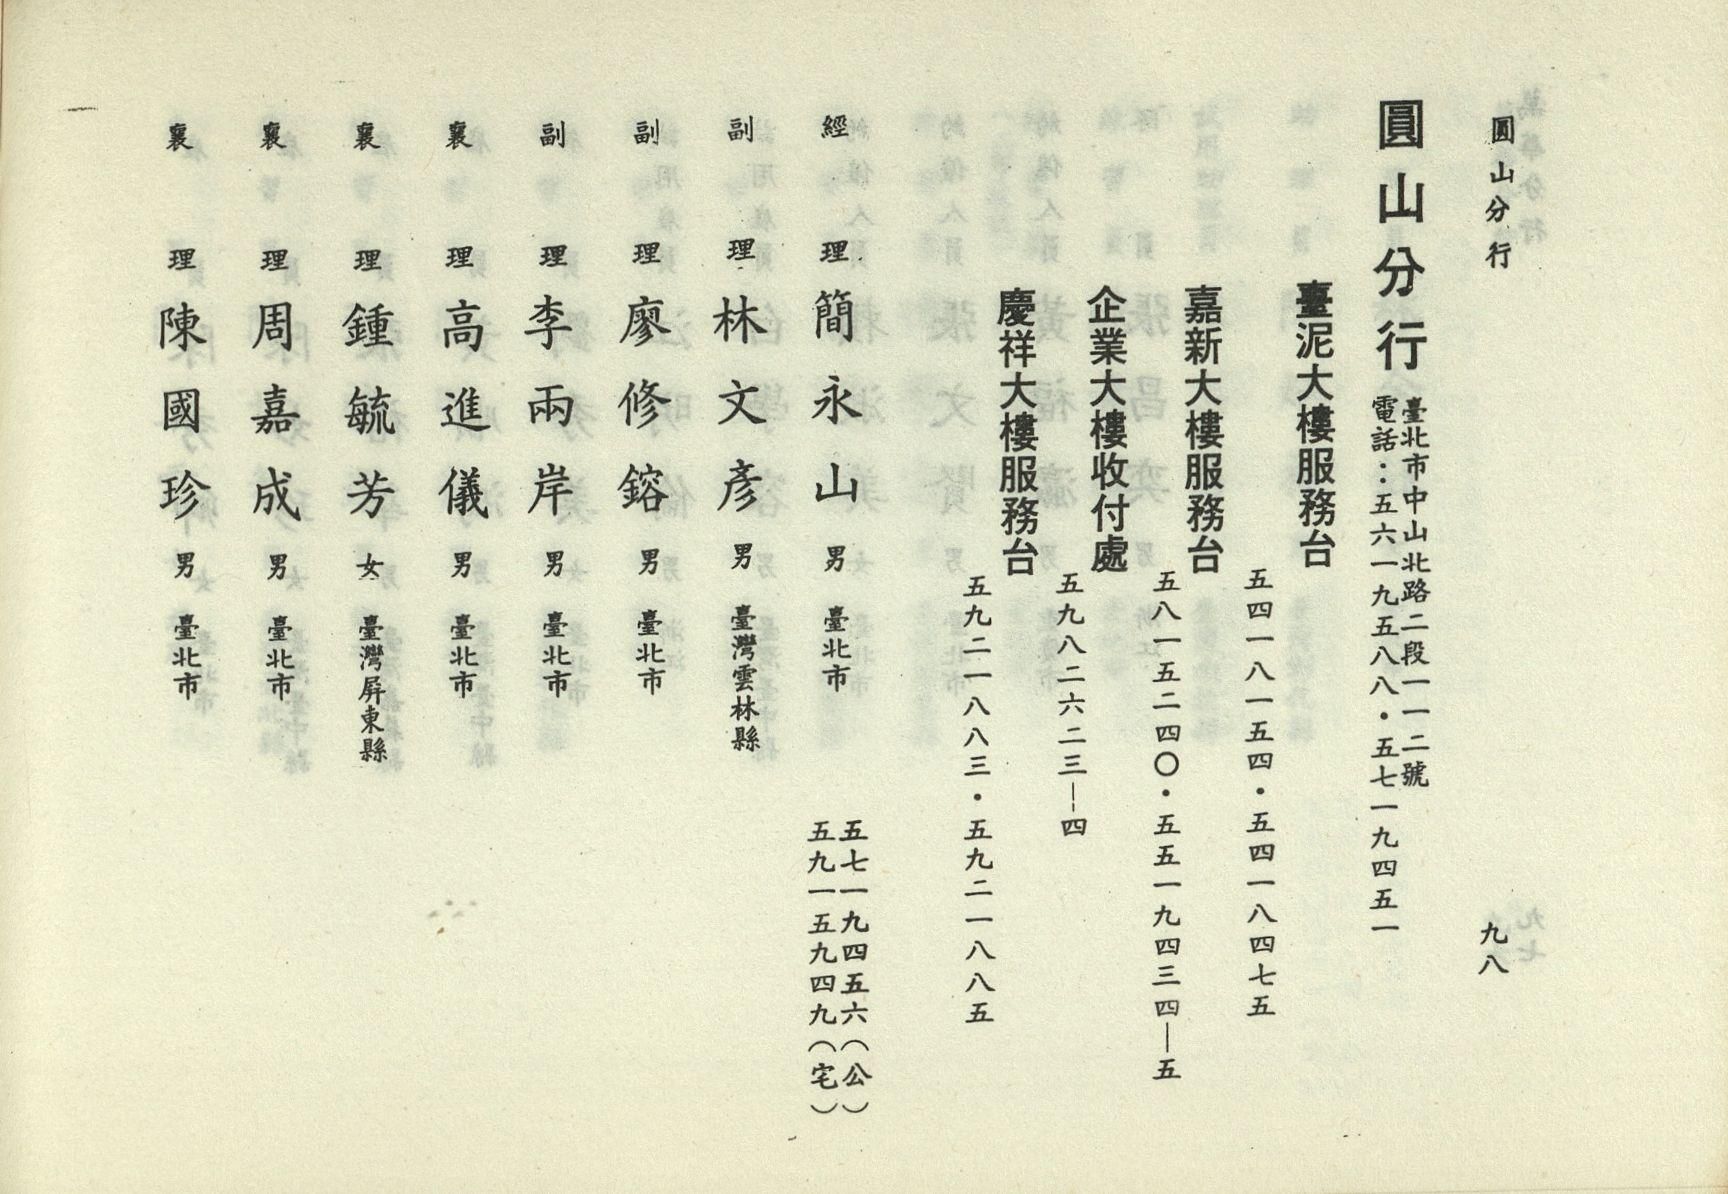 圓山分行
九八
圓山分行
臺北市中山北路二段一一二號
電話：五六一九五八八・五七一九四五一
臺泥大樓服務台
五四一八一五四・五四一八四七五
嘉新大樓服務台
五八一五二四〇・五五一九四三四—五
企業大樓收付處
五九八二六二三—四
慶祥大樓服務台
五九二一八八三・五九二一八八五
經理 簡永山 男 臺北市
五七一九四五六（公）
五九一五九四九（宅）
副理 林文彥 男 臺灣雲林縣
副理 廖修鎔 男 臺北市
副理 李兩岸 男 臺北市
襄理 高進儀 男 臺北市
襄理 鍾毓芳 女 臺灣屏東縣
襄理 周嘉成 男 臺北市
襄理 陳國珍 男 臺北市